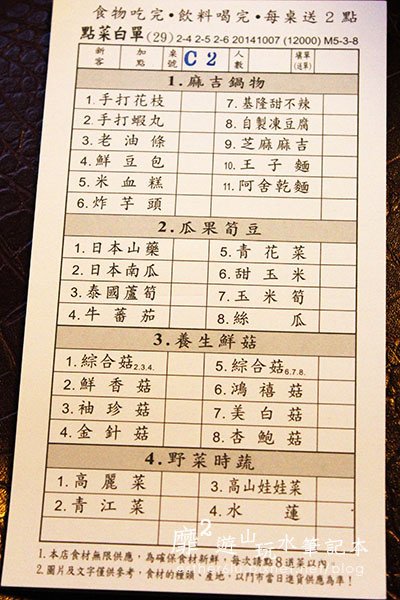 食物吃完•飲料喝完•每桌送2點
點菜白單(29) 2-4 2-5 2-6 20141007 (12000) M5-3-8
新客 加點 桌號 C2 人數 填單(送單)
1.麻吉鍋物
1.手打花枝 7.基隆甜不辣
2.手打蝦丸 8.自製凍豆腐
3.老油條 9.芝麻麻吉
4.鮮豆包 10.王子麵
5.米血糕 11.阿舍乾麵
6.炸芋頭
2.瓜果筍豆
1.日本山藥 5.青花菜
2.日本南瓜 6.甜玉米
3.泰國蘆筍 7.玉米筍
4.牛蕃茄 8.絲瓜
3.養生鮮菇
1.綜合菇2.3.4. 5.綜合菇6.7.8.
2.鮮香菇 6.鴻禧菇
3.袖珍菇 7.美白菇
4.金針菇 8.杏鮑菇
4.野菜時蔬
1.高麗菜 3.高山娃娃菜
2.青江菜 4.水蓮
摩2遊山玩水筆記本
1.本店食材無限供應,為確保食材新鮮,每次請點8道菜以內
2.圖片及文字僅供參考,食材的種類、產地,以門市當日進貨供應為準!